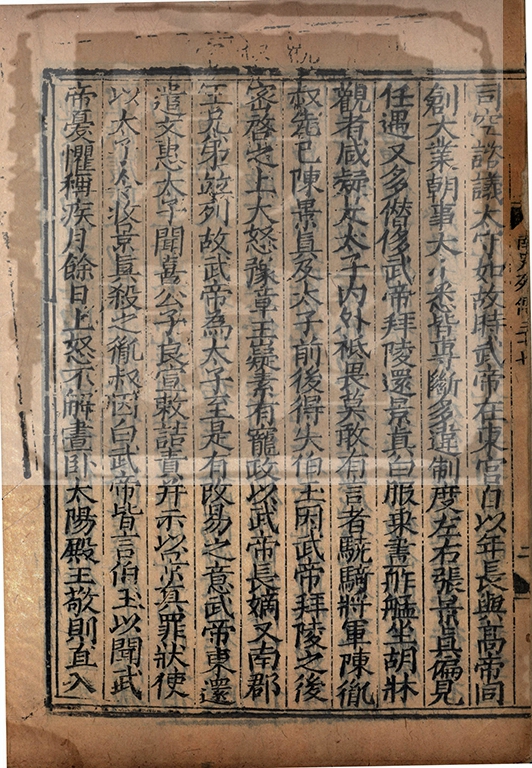 司空諮議太守如故時武帝在東宮自以年長與髙帝同
創大業朝事大小悉皆專斷多違制度左右張景真偏見
任遇又多僣侈武帝拜陵還景真白服乗畫舴艋坐胡牀
觀者咸疑是太子内外祗畏莫敢有言者驍騎將軍陳胤
叔先已陳景真及太子前後得失伯玉因武帝拜陵之後
密啓之上大怒豫章王嶷素有寵政以武帝長嫡又南郡
王兄弟竝列故武帝為太子至是有改易之意武帝東還
遣文惠太子聞喜公子良宣敕詰責并示以景真罪狀使
以太子令收景真殺之胤叔因白武帝皆言伯玉以聞武
帝憂懼稱疾月餘日上怒不解晝卧太陽殿王敬則直入